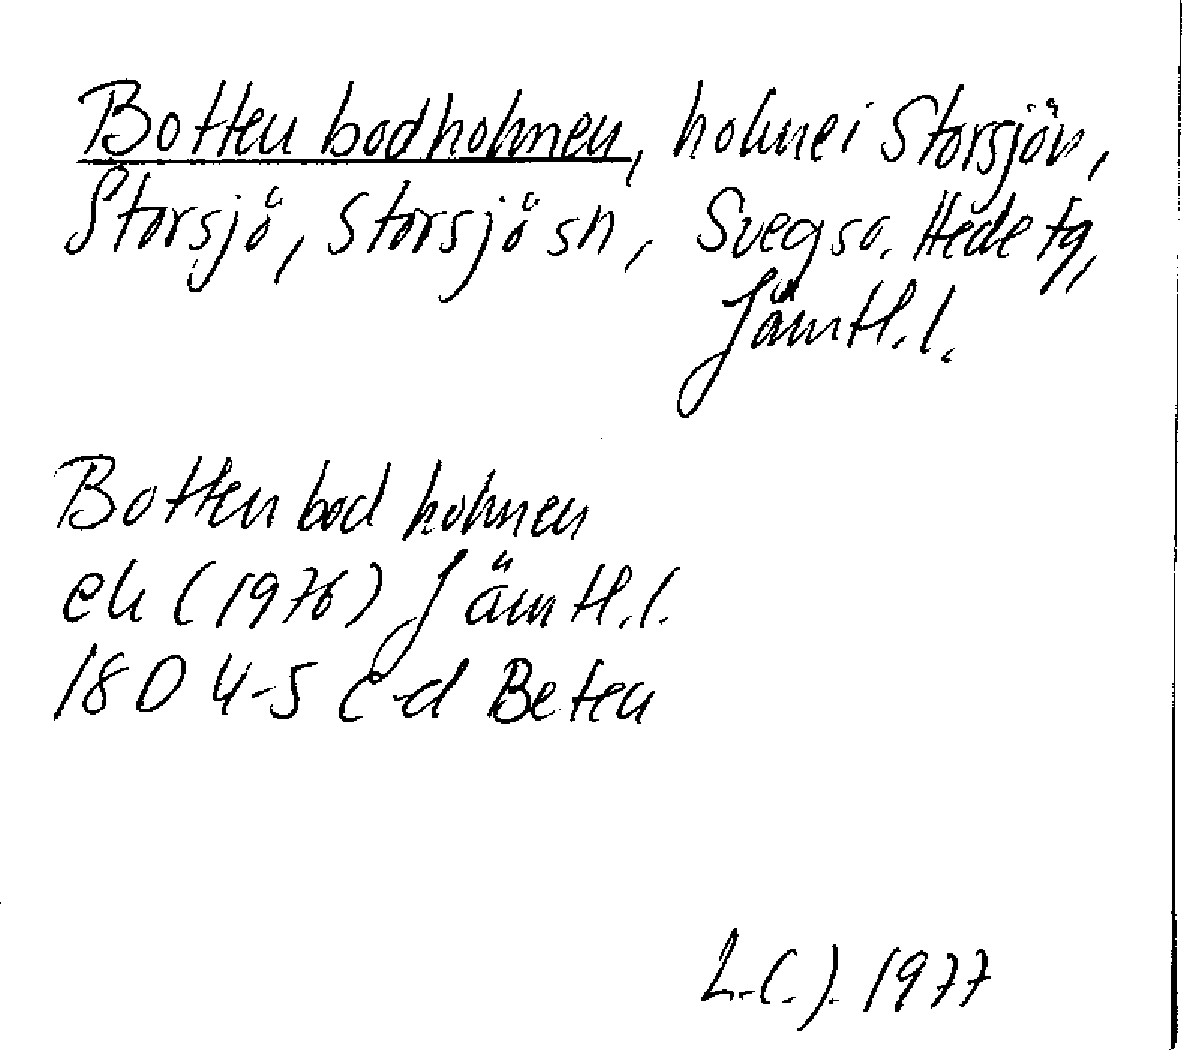 Bottenbodholmen, holme i Storsjön,
Storsjö, Storsjö sn, Svegs so. Hede tg,
Jämtl.l.
Bottenbodholmen
ek (1976) Jämtl.l.
18D 4-5 c-d Beten
L.C.J. 1977